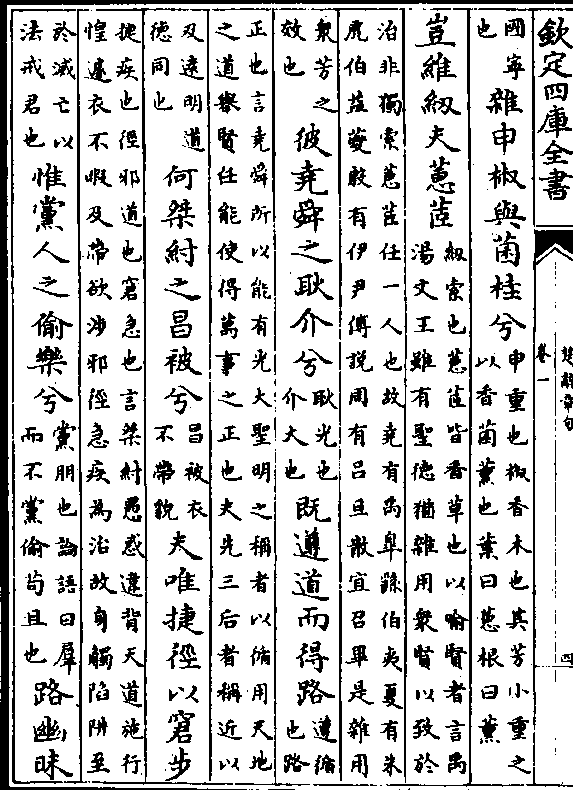 欽定四庫全書
楚辭章句
卷一
四
國寧也雜申椒與菌桂兮申重也椒香木也其芳小重之以香菌薰也葉曰蕙根曰薰
豈維紉夫蕙茝紉索也蕙茝皆香草也以喻賢者言禹湯文王雖有聖德猶雜用衆賢以致於
治非獨索蕙茝任一人也故堯有禹臯繇伯夷夏有朱虎伯益夔殷有伊尹傅説周有吕旦散宜召畢是雜用
衆芳之效也彼堯舜之耿介兮耿光也介大也既遵道而得路遵循也路
正也言堯舜所以能有光大聖明之稱者以循用天地之道舉賢任能使得萬事之正也夫先三后者稱近以
及遠明道德同也何桀紂之昌被兮昌被衣不帶貌夫唯捷徑以窘步
捷疾也徑邪道也窘急也言桀紂愚惑違背天道施行惶遽衣不暇及帶欲涉邪徑急疾為治故身觸陷阱至
於滅亡以法戒君也惟黨人之偷樂兮黨朋也論語曰羣而不黨偷茍且也路幽昧